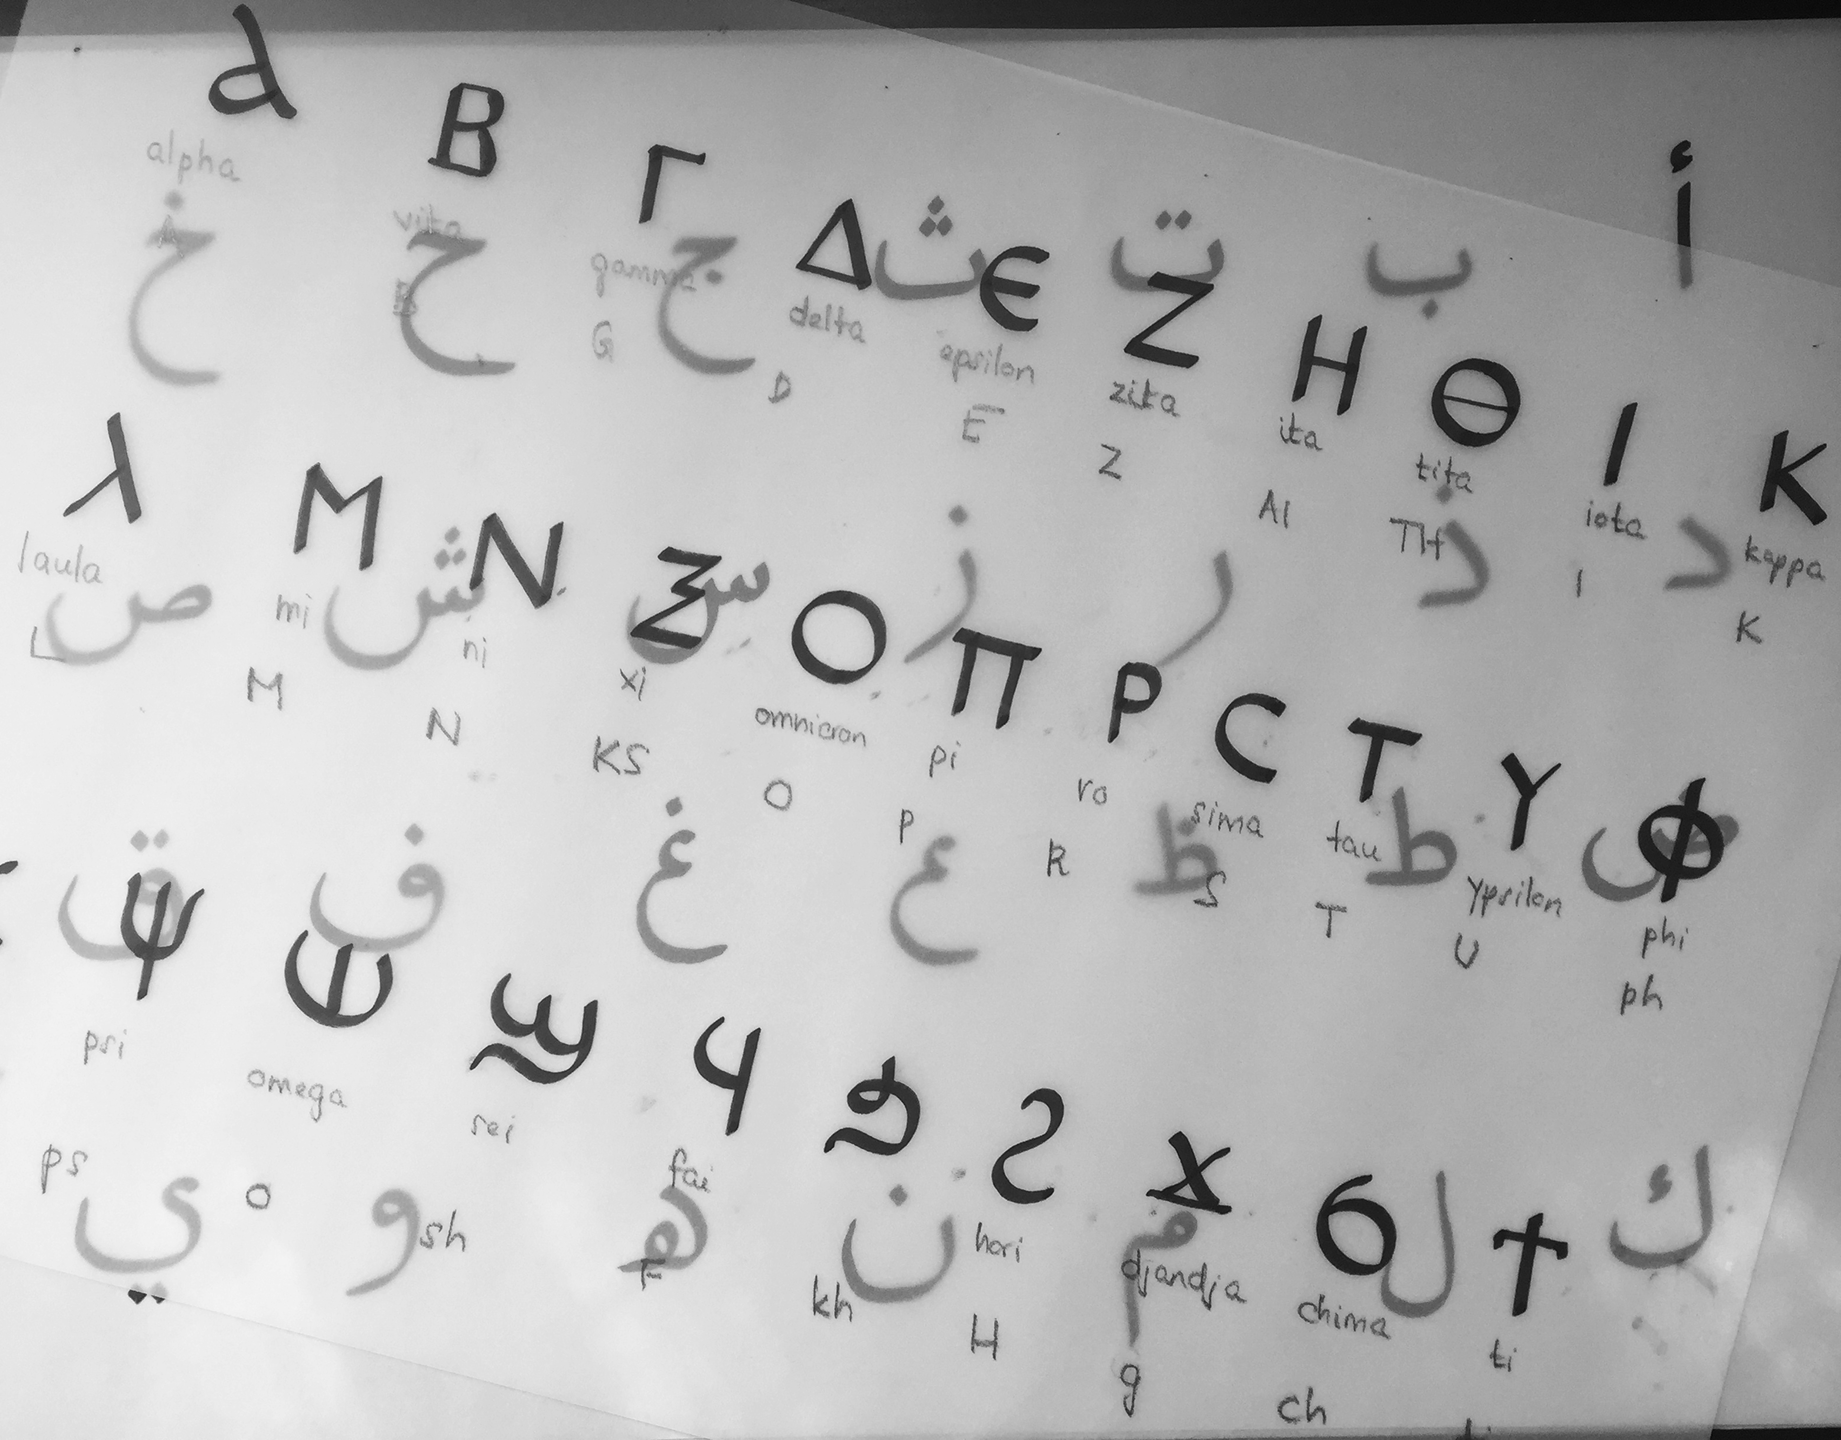 ⲁ Ⲃ Ⲅ Ⲇ Ⲉ Ⲍ Ⲏ Ⲑ Ⲓ Ⲕ
alpha vita gamma delta epsilon zita ita tita iota kappa
A B G D E Z AI TH I K
ⲗ Ⲙ Ⲛ Ⲝ Ⲟ Ⲡ Ⲣ Ⲥ Ⲧ Ⲩ Ⲫ
laula mi ni xi omnicron pi ro sima tau ypsilon phi
L M N KS O P R S T U ph
Ⲯ Ⲱ Ϣ Ϥ Ϩ Ϫ Ϭ Ϯ
psi omega sei fai hori djandja chima ti
ps o sh F kh H g ch
أ ب ت ث ج ح خ
د ذ ر ز س ش ص
ض ط ظ ع غ ف ق
ك ل م ن ه و ي